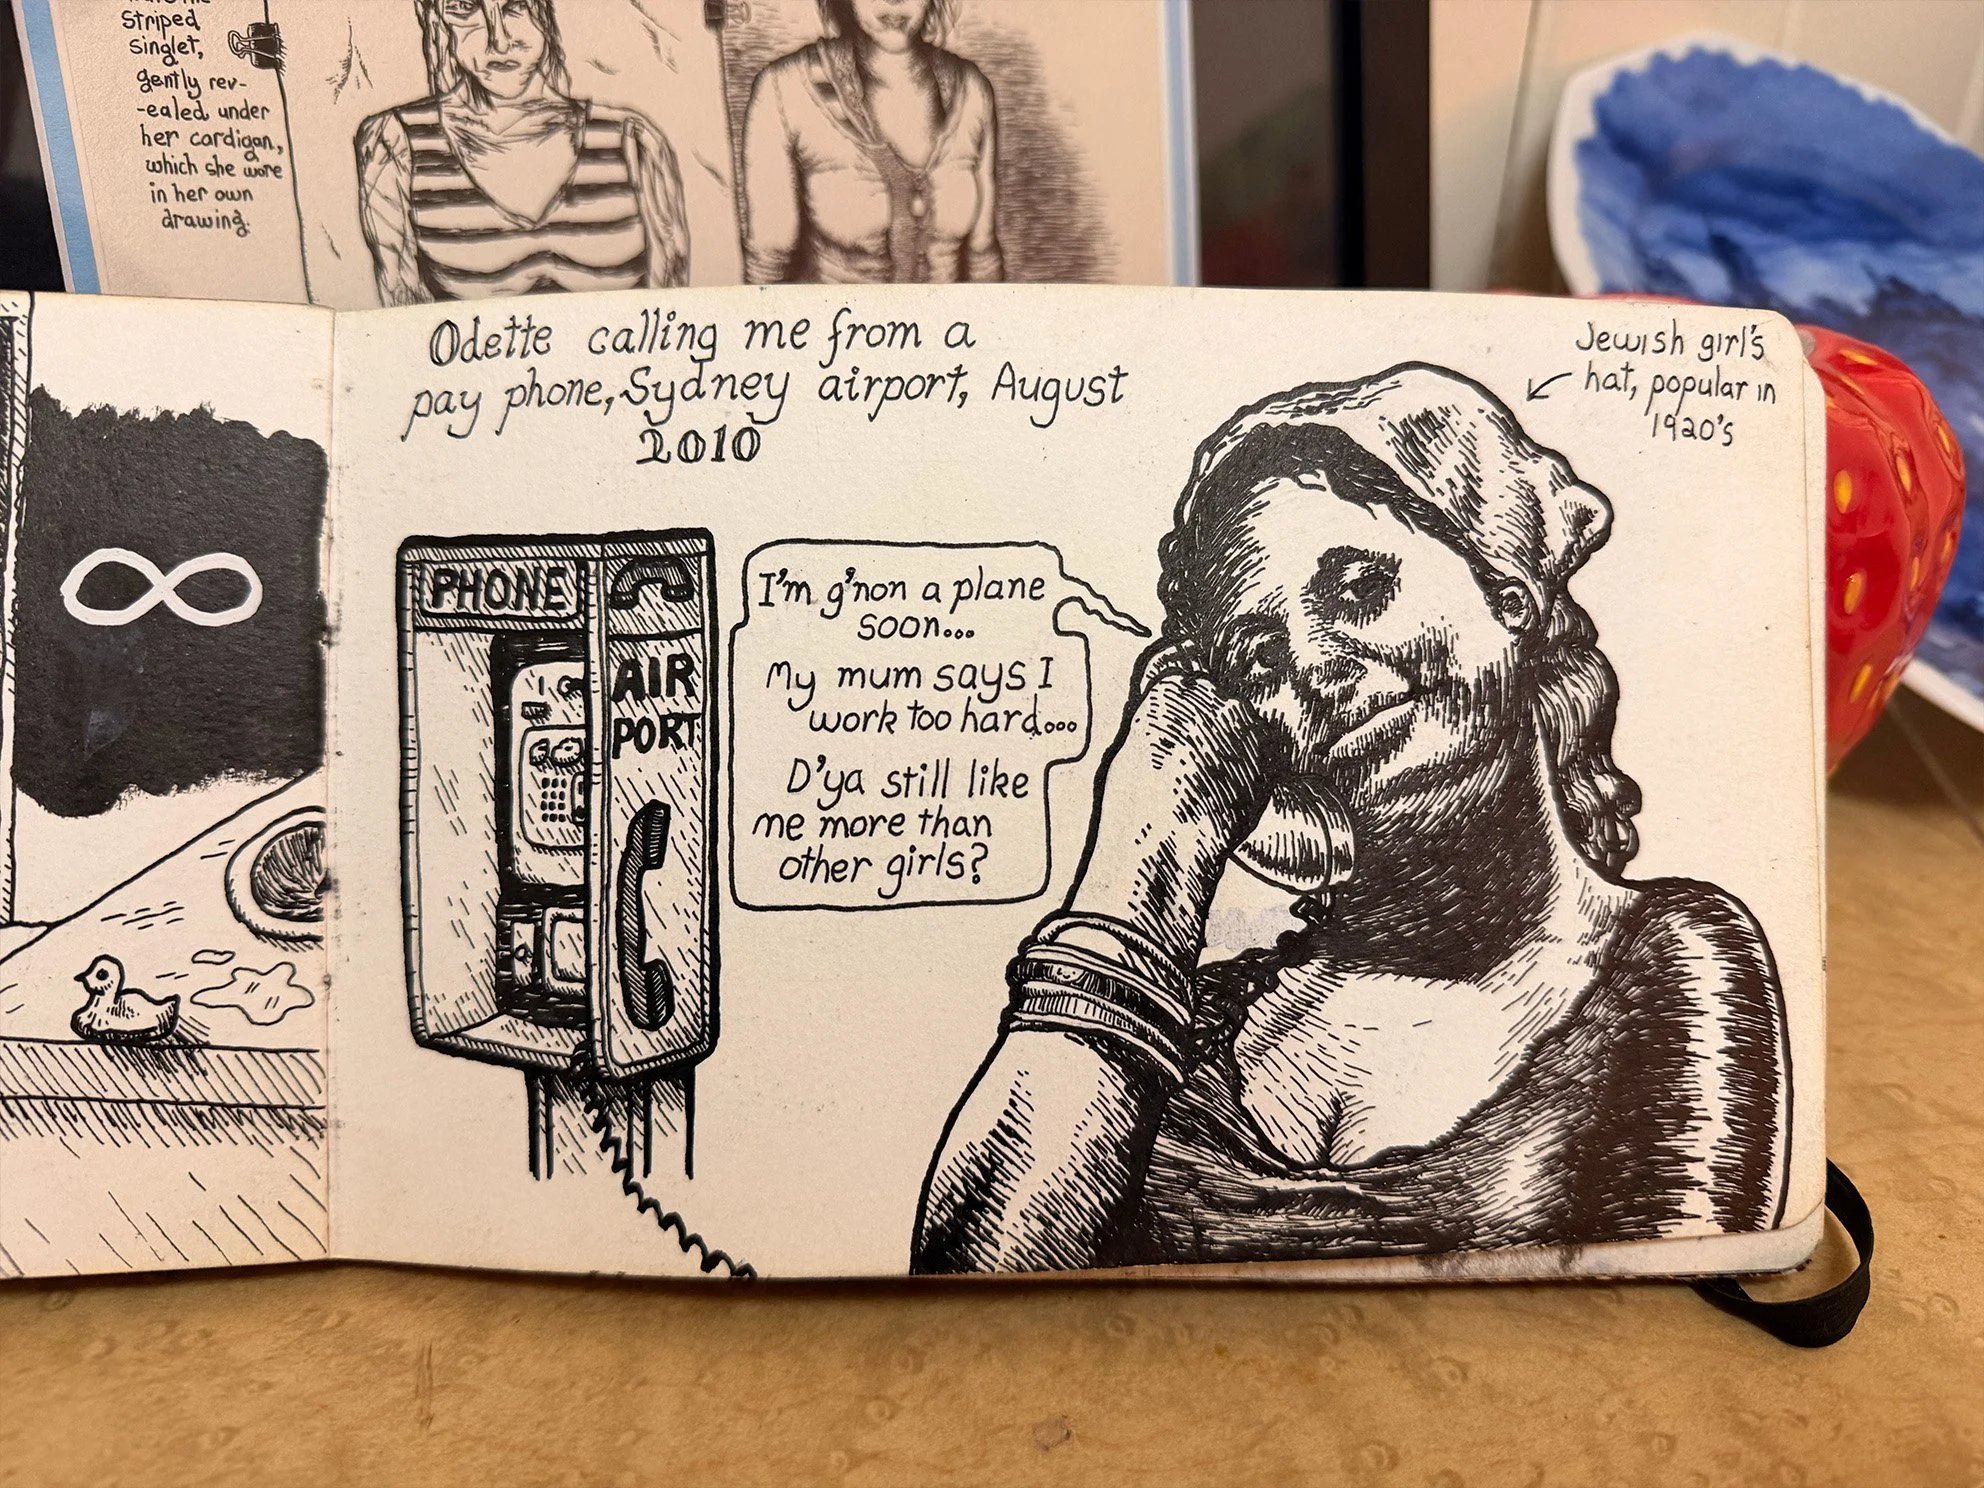 striped
singlet,
gently rev-
-ealed under
her cardigan,
which she wore
in her own
drawing.
Odette calling me from a
pay phone, Sydney airport, August
2010
Jewish girl's
hat, popular in
1920's
PHONE
AIR
PORT
I'm g'non a plane
soon...
My mum says I
work too hard...
D'ya still like
me more than
other girls?